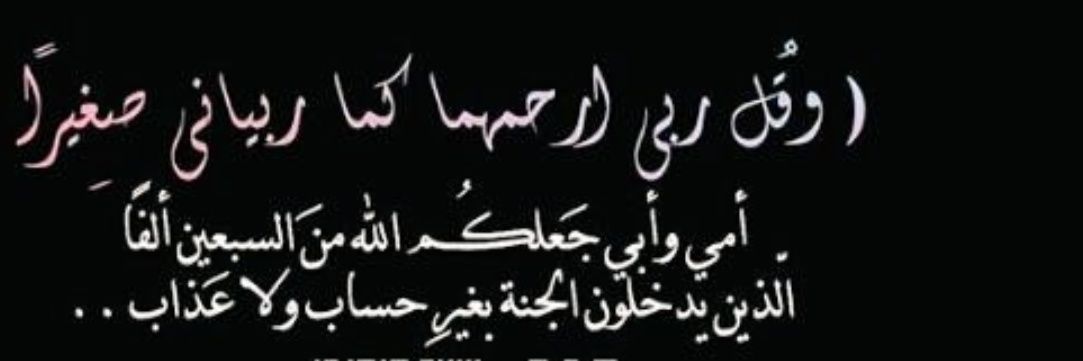 ( وقُل ربي ارحمهما كما ربياني صغيرًا
أمي وأبي جَعلكُم الله منَ السبعين ألفًا
الّذين يدخلون الجنة بغيرِ حساب ولا عَذاب . .